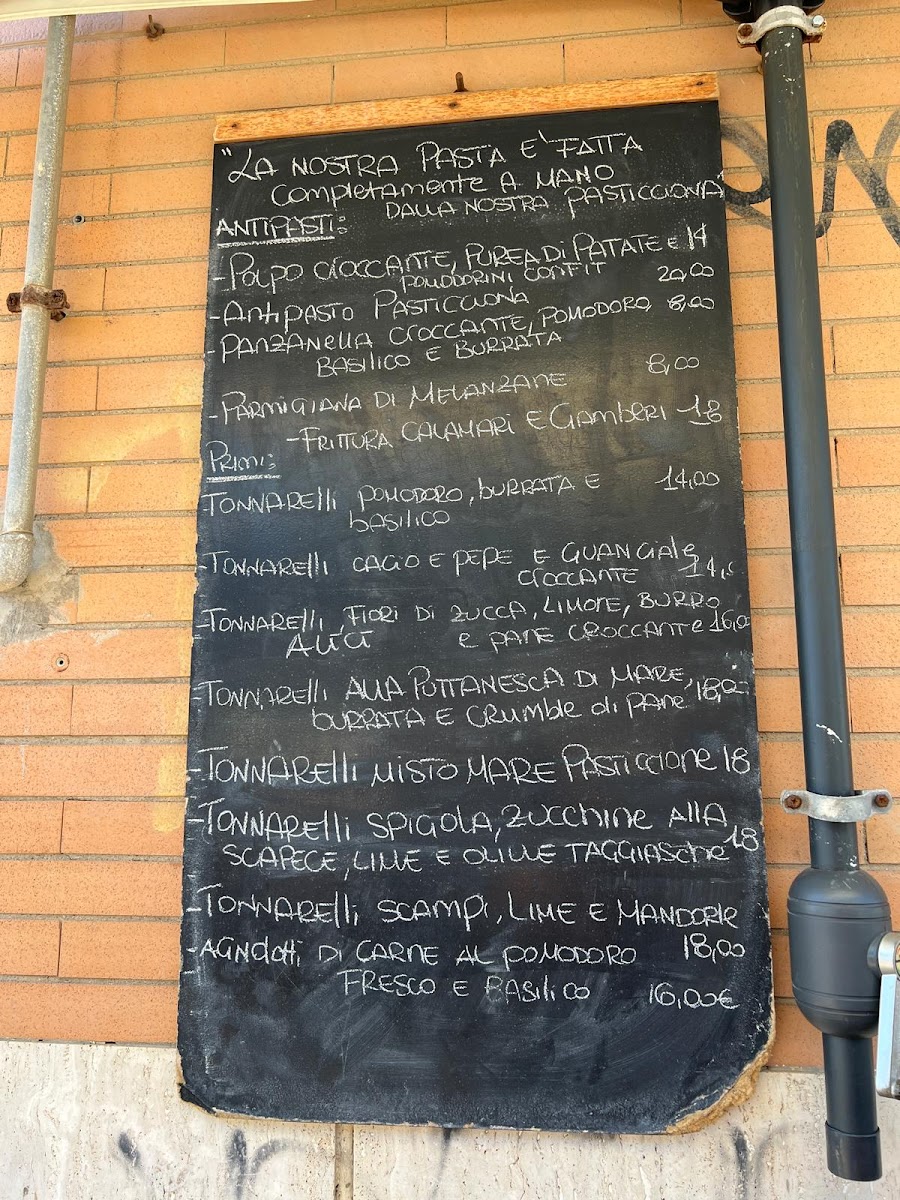 "LA NOSTRA PASTA E' FATTA
COMPLETAMENTE A MANO
DALLA NOSTRA PASTICCIONA"
ANTIPASTI:
- POLPO CROCCANTE, PUREA DI PATATE E 14
POMODORINI CONFIT
- ANTIPASTO PASTICCIONA 20,00
- PANZANELLA CROCCANTE, POMODORO, 8,00
BASILICO E BURRATA
- PARMIGIANA DI MELANZANE 8,00
- FRITTURA CALAMARI E GAMBERI 18
PRIMI:
- TONNARELLI POMODORO, BURRATA E 14,00
BASILICO
- TONNARELLI CACIO E PEPE E GUANCIALE
CROCCANTE 14,
- TONNARELLI FIORI DI ZUCCA, LIMONE, BURRO
ALICI E PANE CROCCANTE 16,00
- TONNARELLI ALLA PUTTANESCA DI MARE, 18,0
BURRATA E CRUMBLE DI PANE
- TONNARELLI MISTO MARE PASTICCIONE 18
- TONNARELLI SPIGOLA, ZUCCHINE ALLA
SCAPECE, LIME E OLIVE TAGGIASCHE 18
- TONNARELLI SCAMPI, LIME E MANDORLE
18,00
- AGNOLOTTI DI CARNE AL POMODORO
FRESCO E BASILICO 16,00€